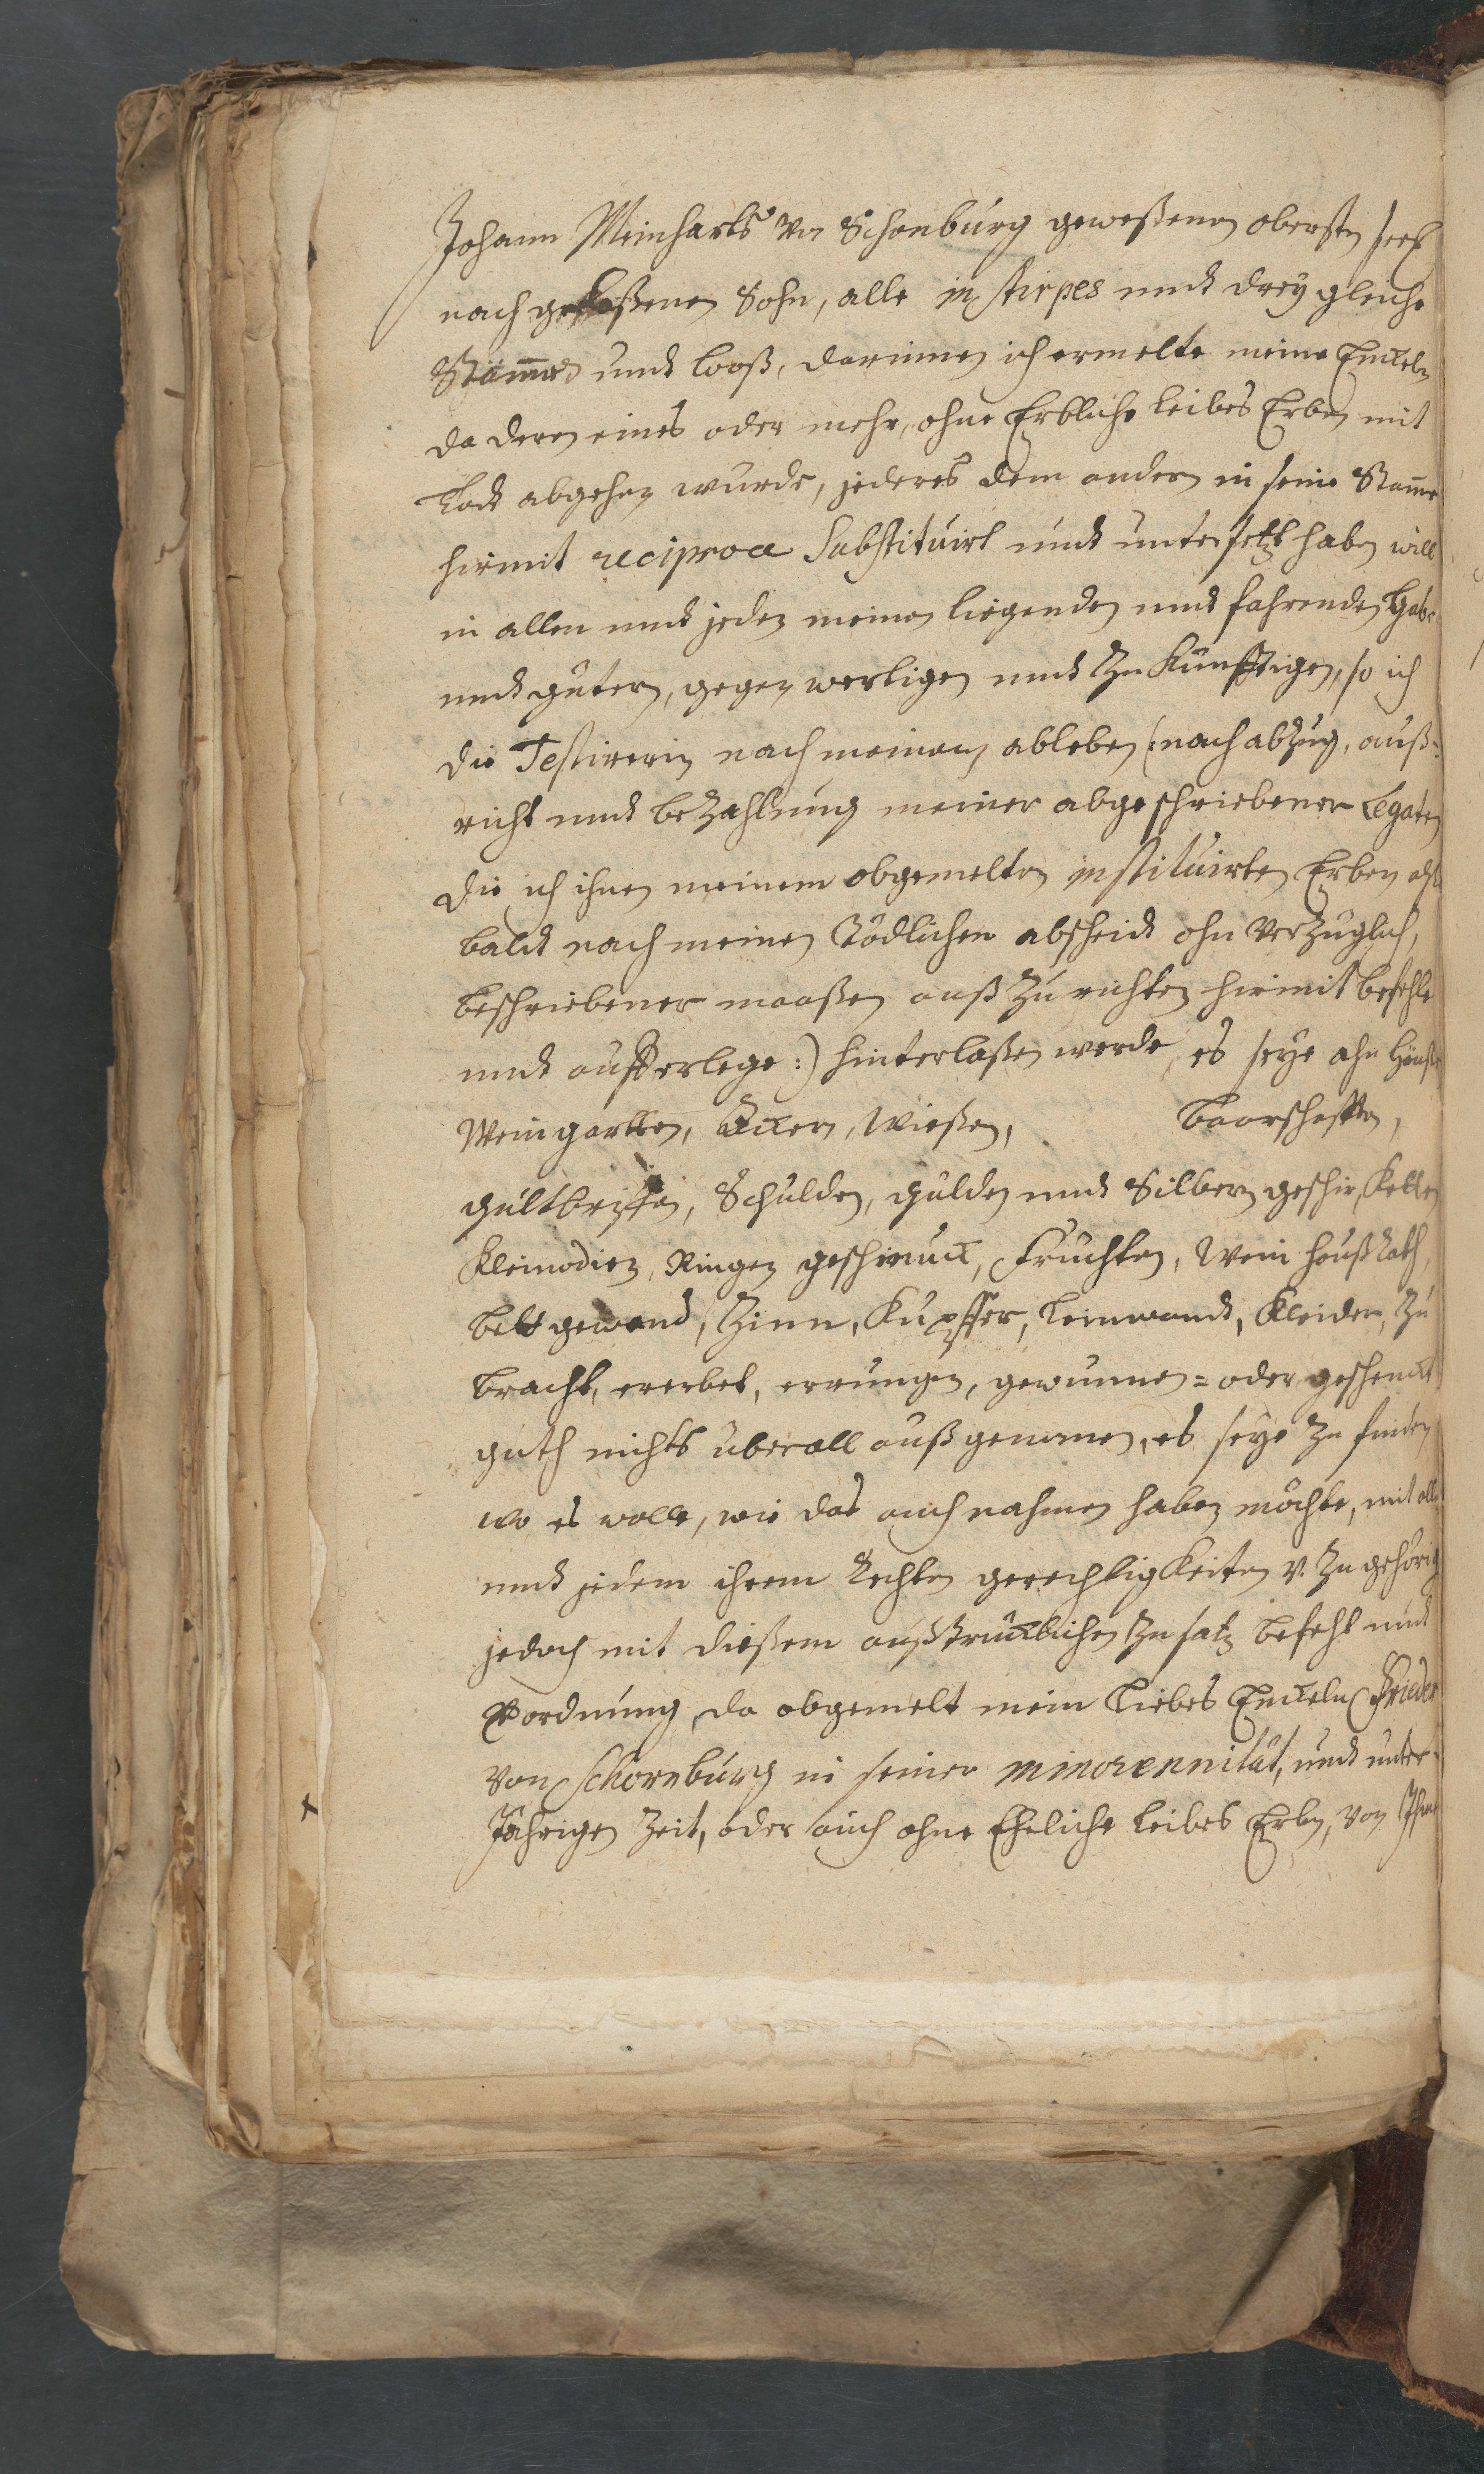 Johann Meinharts von Schonburg geweßenen obersten seel
nach gelaßenen Sohn, alle in stirpes undt drey gleiche
Stämme undt looß, darinnen ich ermelte meine Enckeln
da deren eines oder mehr, ohne Erbliche leibes Erben mit
Todt abgehen wurde, jederes dem andern in seine Stamme
hirmit reciproce Substituirt undt untersetzt haben will
in allen undt jeden meinen liegenden undt fahrenden Haab
undt gütern, gegenwertigen undt Zu Künfftigen, so ich
die Testirerin nach meinem ableben (: nach abzug, auß-
richt undt beZahlung meiner abgeschriebener Legaten
die ich ihnen meinem obgemelten instituirten Erben alß
baldt nach meinen Tödlichen abscheidt ohn verZüglich,
beschriebener maaßen auß Zu richten hirmit befehle
undt aufferlege :) hinterlaßen werde, es seye ahn Häußer
Weingarten, Äcker, Wießen, baarschafften,
gültbrieffen, Schulden, gülden undt Silbern geschir, Ketten
Kleinodien, Ringen geschmuck, Früchten, Wein haußrath,
bettgewand, Zinn, Kupffer, leinwandt, Kleider, Zu
bracht, ererbet, errungen, gewunnen= oder geschenckt
guth nichts uberall außgenomen, es seye Zu finden
wo es wolle, wie das auch nahmen haben möchte, mit all
undt jedem ihrem Rechten gerechtigkeiten v. Zugehörig
jedoch mit dießem außtrücklichen Zusatz befehl undt
Verordnung, da obgemelt mein liebes Enckeln Frieder
von Schornburg in seiner minorennität, undt unter-
Jährigen Zeit, oder auch ohne Eheliche leibes Erben, von Ihm